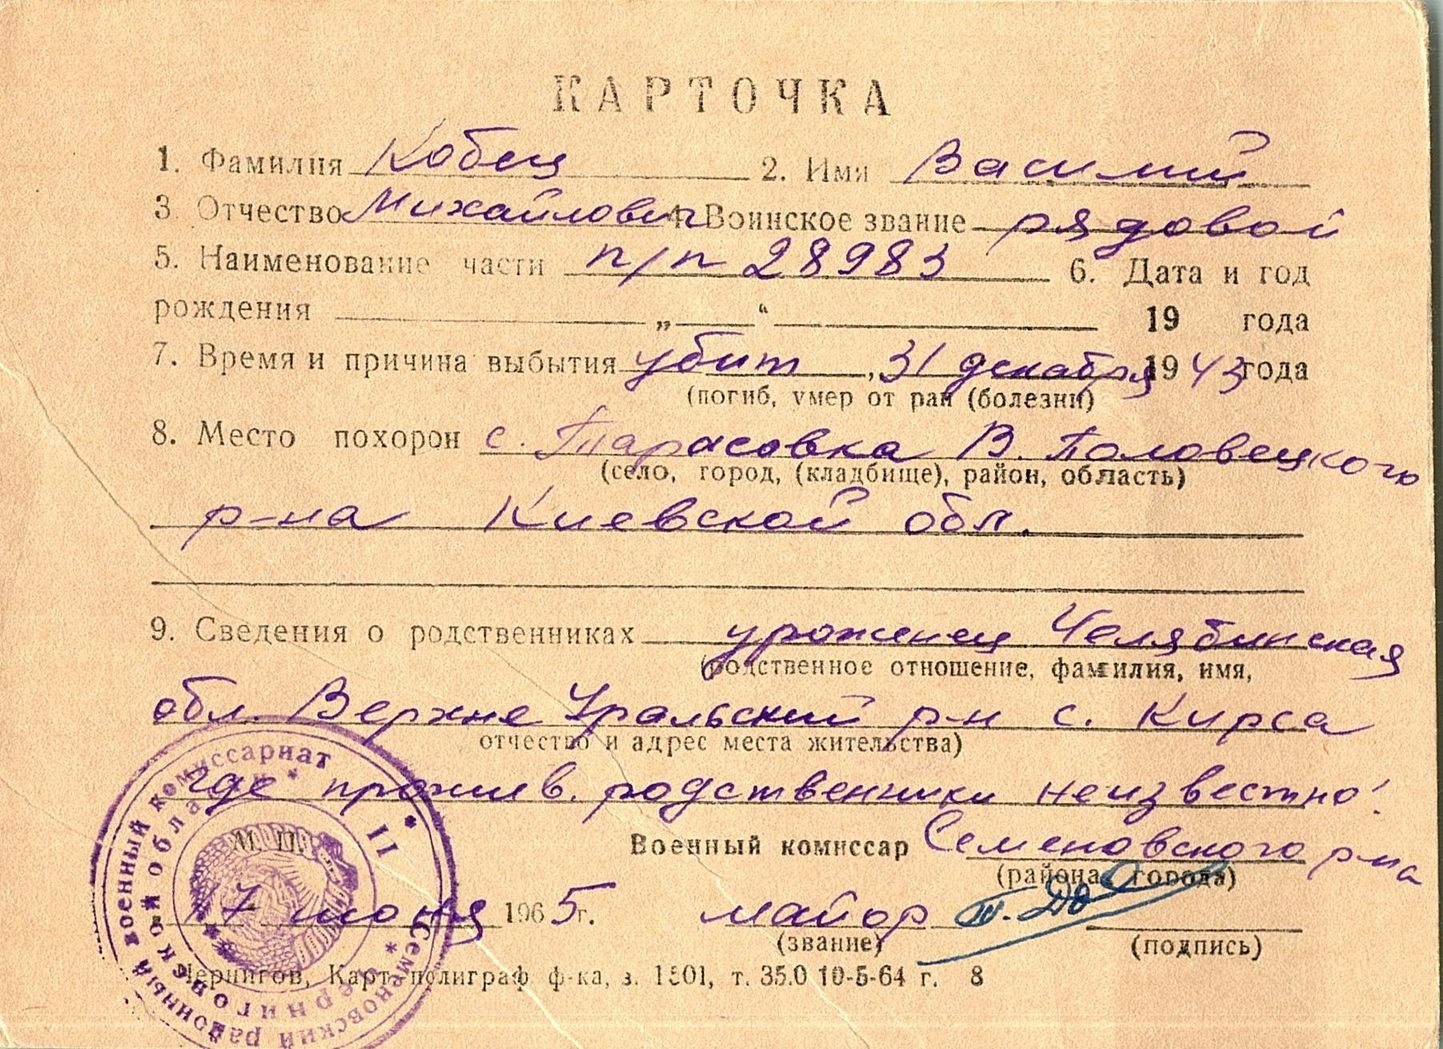 КАРТОЧКА
1. Фамилия Кобец 2. Имя Василий
3. Отчество Михайлович 4. Воинское звание рядовой
5. Наименование части п/п 28983 6. Дата и год
рождения „ “ 19 года
7. Время и причина выбытия убит, 31 декабря 1943 года
(погиб, умер от ран (болезни)
8. Место похорон с. Тарасовка В. Половецкого
(село, город, (кладбище), район, область)
р-на Киевской обл.
9. Сведения о родственниках уроженец Челябинская
(родственное отношение, фамилия, имя,
обл. Верхне Уральский р-н с. Кирса
отчество и адрес места жительства)
где прожив. родственники неизвестно!
Военный комиссар Семеновского р-на
(района, города)
М. П.
17 июня 1965 г. майор
(звание) (подпись)
Чернигов, Карт-полиграф ф-ка, з. 1501, т. 35.0 10-5-64 г. 8
Семеновский районный военный комиссариат
Черниговской области
II